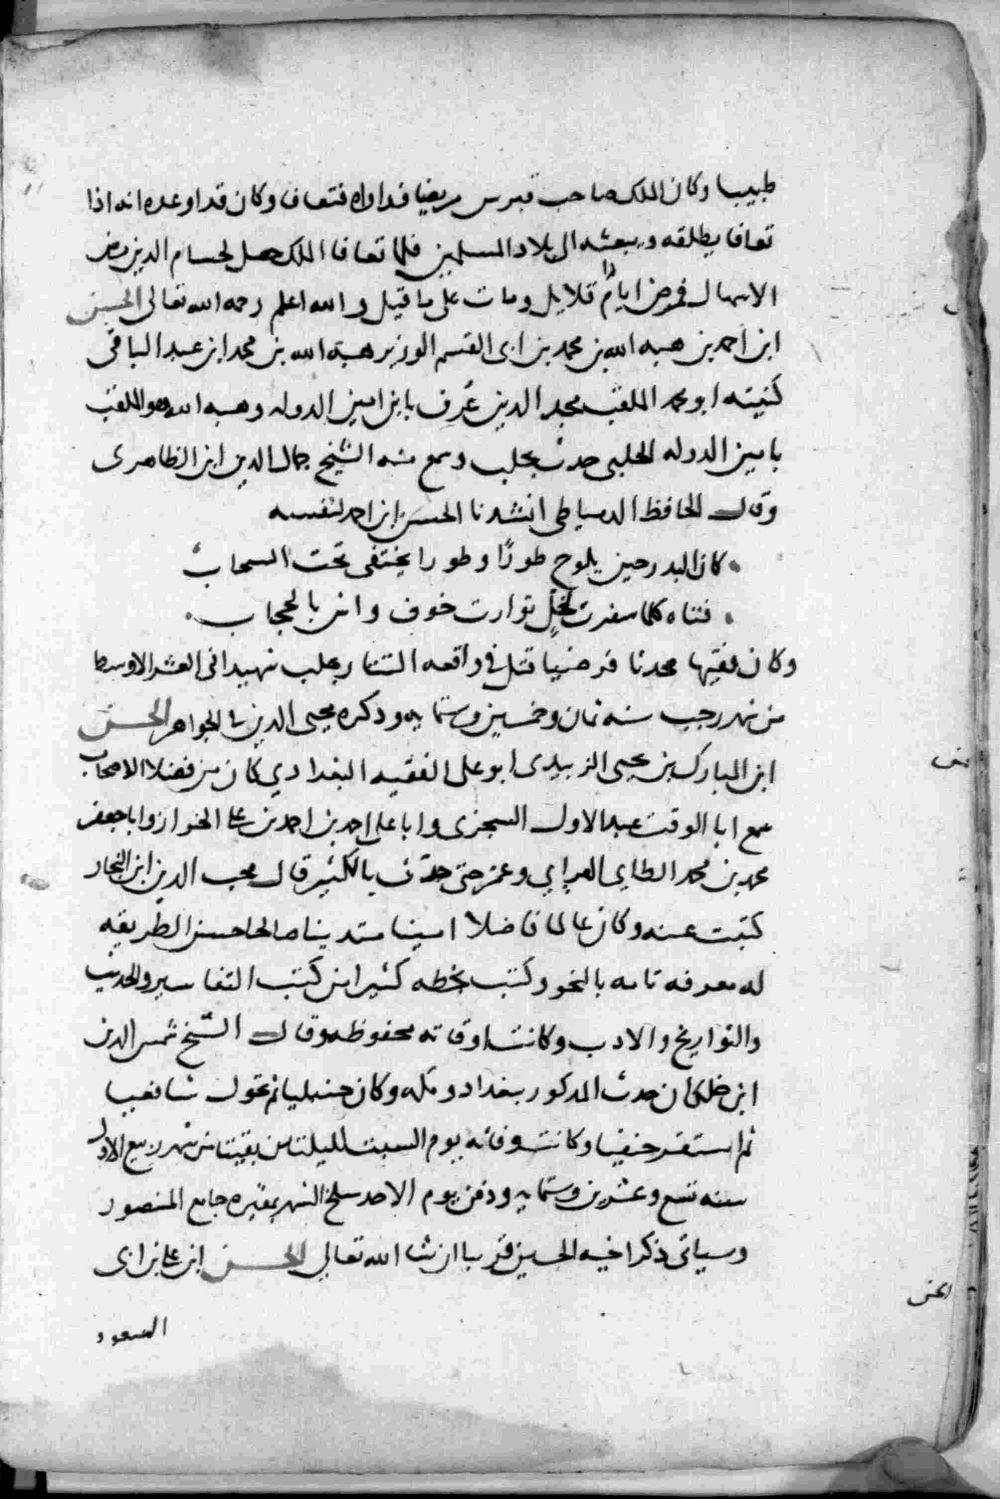 طبيبا وكان الملك صاحب قبرس مريضا فداواه فتعافا وكان قد اوعده انه اذا
تعافا يطلقه ويبعثه الى بلاد المسلمين فلما تعافا الملك حصل لحسام الدين مرض
الاسهال فمرض اياما قلايل ومات على ما قيل والله اعلم رحمه الله تعالى الحسن
ابن احمد بن هبه الله بن محمد بن ابى القسم الوزير هبة الله بن محمد ابن عبد الباقى
كنيته ابو محمد الملقب مجد الدين عُرف بابن امين الدوله وهبه الله هو الملقب
بامين الدوله الحلبى حدث بحلب وسمع منه الشيخ جمال الدين ابن الظاهرى
وقال الحافظ الدمياطى انشدنا الحسن ابن احمد لنفسه
كان البدر حين يلوح طورًا وطورا يختفى تحت السحاب
فتاه كلما سفرت لخل توارت خوف واش بالحجاب
وكان فقيها محدثا فرضيا قتل فى واقعه التتار بحلب شهيدا فى العشر الاوسط
من شهر رجب سنه ثمان وخمسين وستمايه وذكره محيى الدين فى الجواهر الحسن
ابن المبارك بن يحيى الزبيدى ابو على الفقيه البغدادي كان من فضلا الاصحاب
سمع ابا الوقت عبد الاول السجزى وابا على احمد بن احمد بن على الخراز وابا جعفر
محمد بن محمد الطاىى وعمر حتى حدّث بالكثير قال محب الدين ابن النجار
كتبت عنه وكان عالما فاضلا امينا متدينا صالحا حسن الطريقه
له معرفه تامه بالنحو وكتب بخطه كثيرا من كتب التفاسير والحديث
والتواريخ والادب وكانت اوقاته محفوظه وقال الشيخ شمس الدين
ابن خلكان حدث المذكور ببغداد ومكه وكان حنبليا ثم تحول شافعيا
ثم استقر حنفيا وكانت وفاته يوم السبت لليلتين بقيتا من شهر ربيع الاول
سنه تسع وعشرين وستمايه ودفن يوم الاحد سلخ الشهر بمقبره جامع المنصور
وسياتى ذكر اخيه الحسين قريبا ان شا الله تعالى الحسن ابن على بن ابى
المسعود